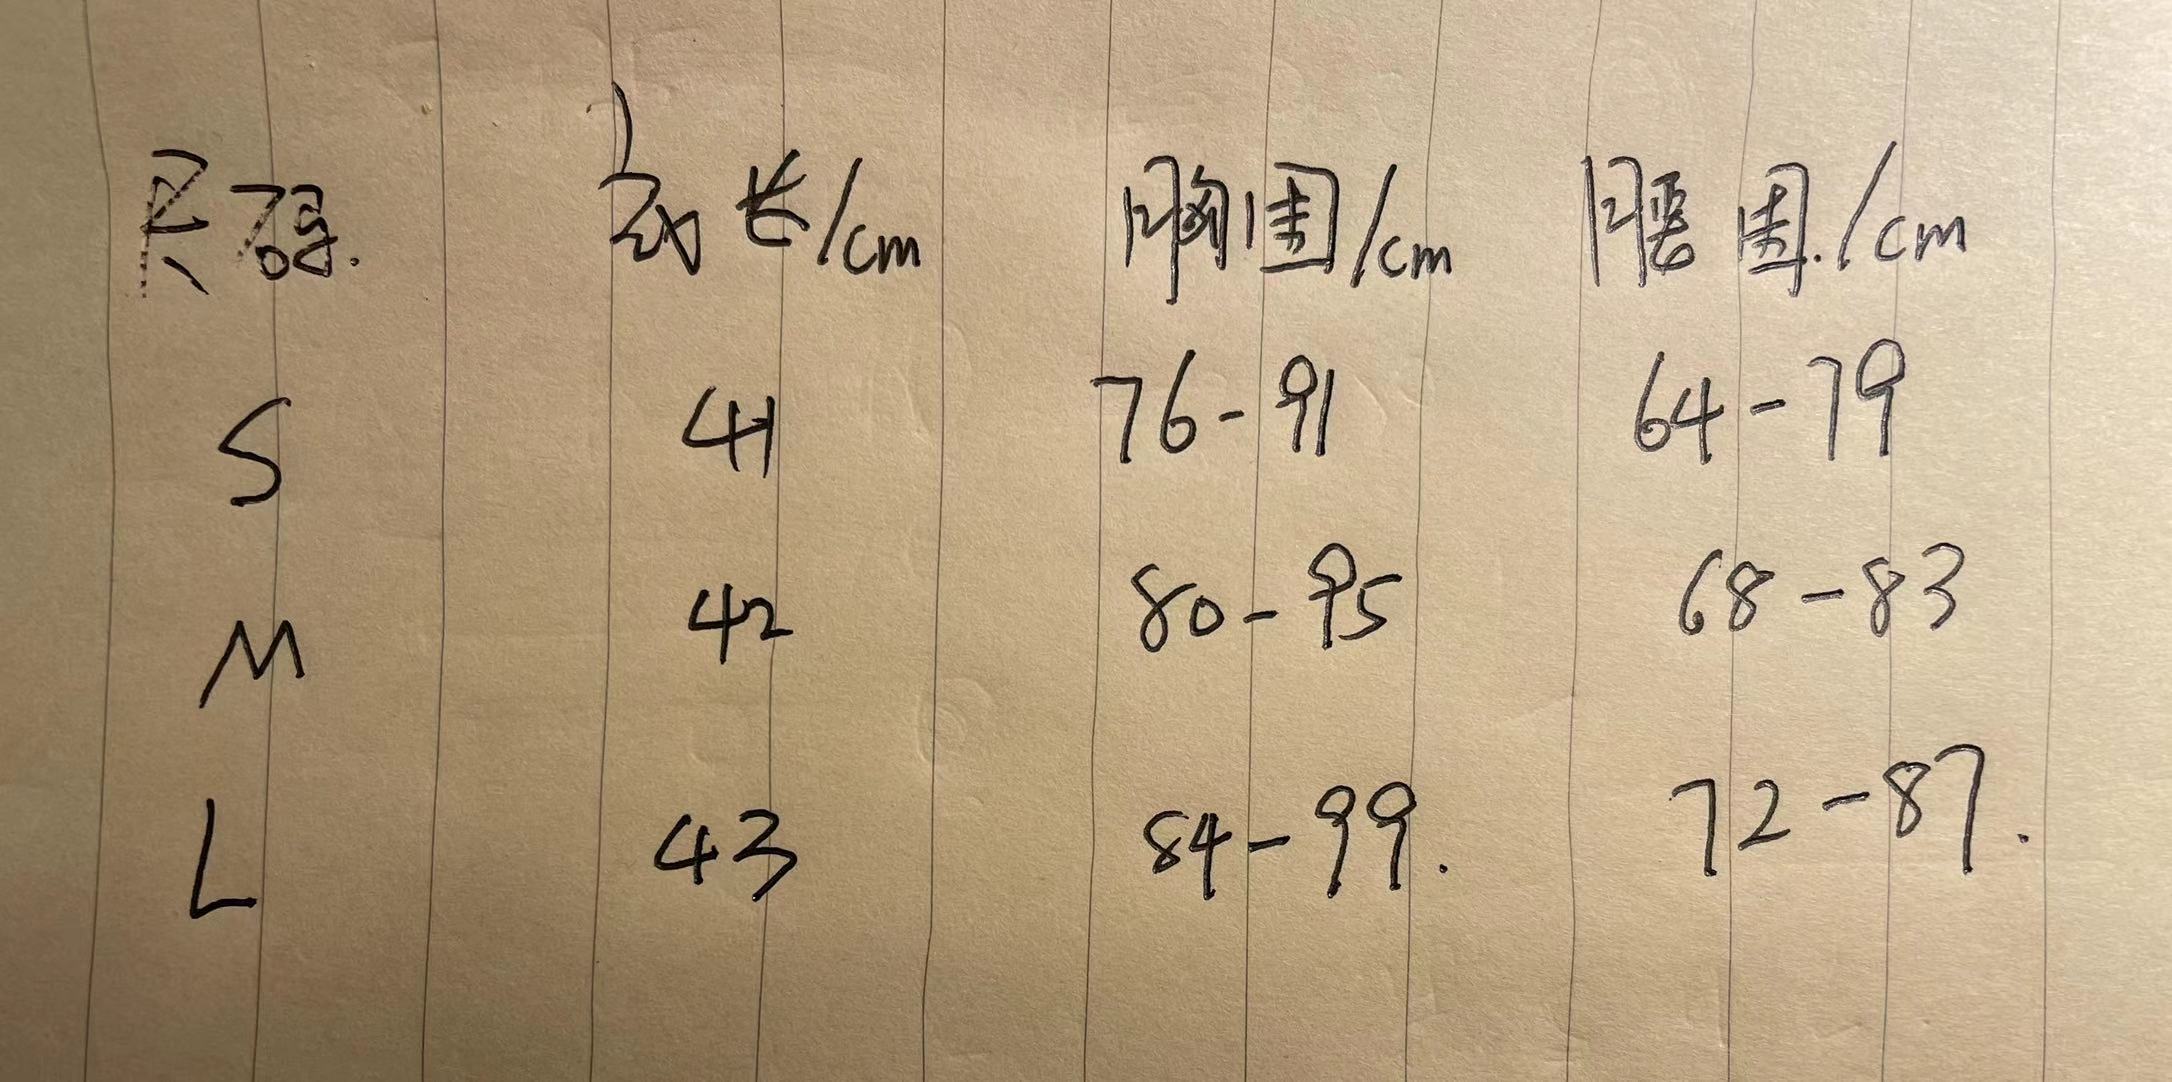 尺码. 衣长/cm 胸围/cm 腰围./cm
S 41 76-91 64-79
M 42 80-95 68-83
L 43 84-99. 72-87.